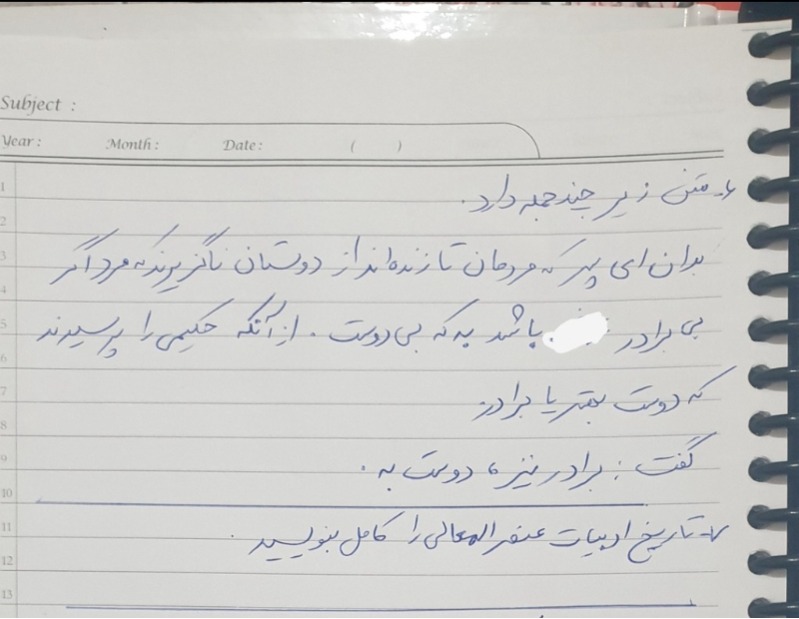 Subject :
Year : Month : Date : ( )
۶- متن زیر چند جمله دارد.
بدان ای پسر که مردمان تا زنده‌اند از دوستان ناگزیرند که مرد اگر
بی برادر باشد به که بی دوست. از آنکه حکیمی را پرسیدند
که دوست بهتر یا برادر
گفت: برادر نیز، دوست به.
۷- تاریخ ادبیات عنصرالمعالی را کامل بنویسید.
1
2
3
4
5
6
7
8
9
10
11
12
13